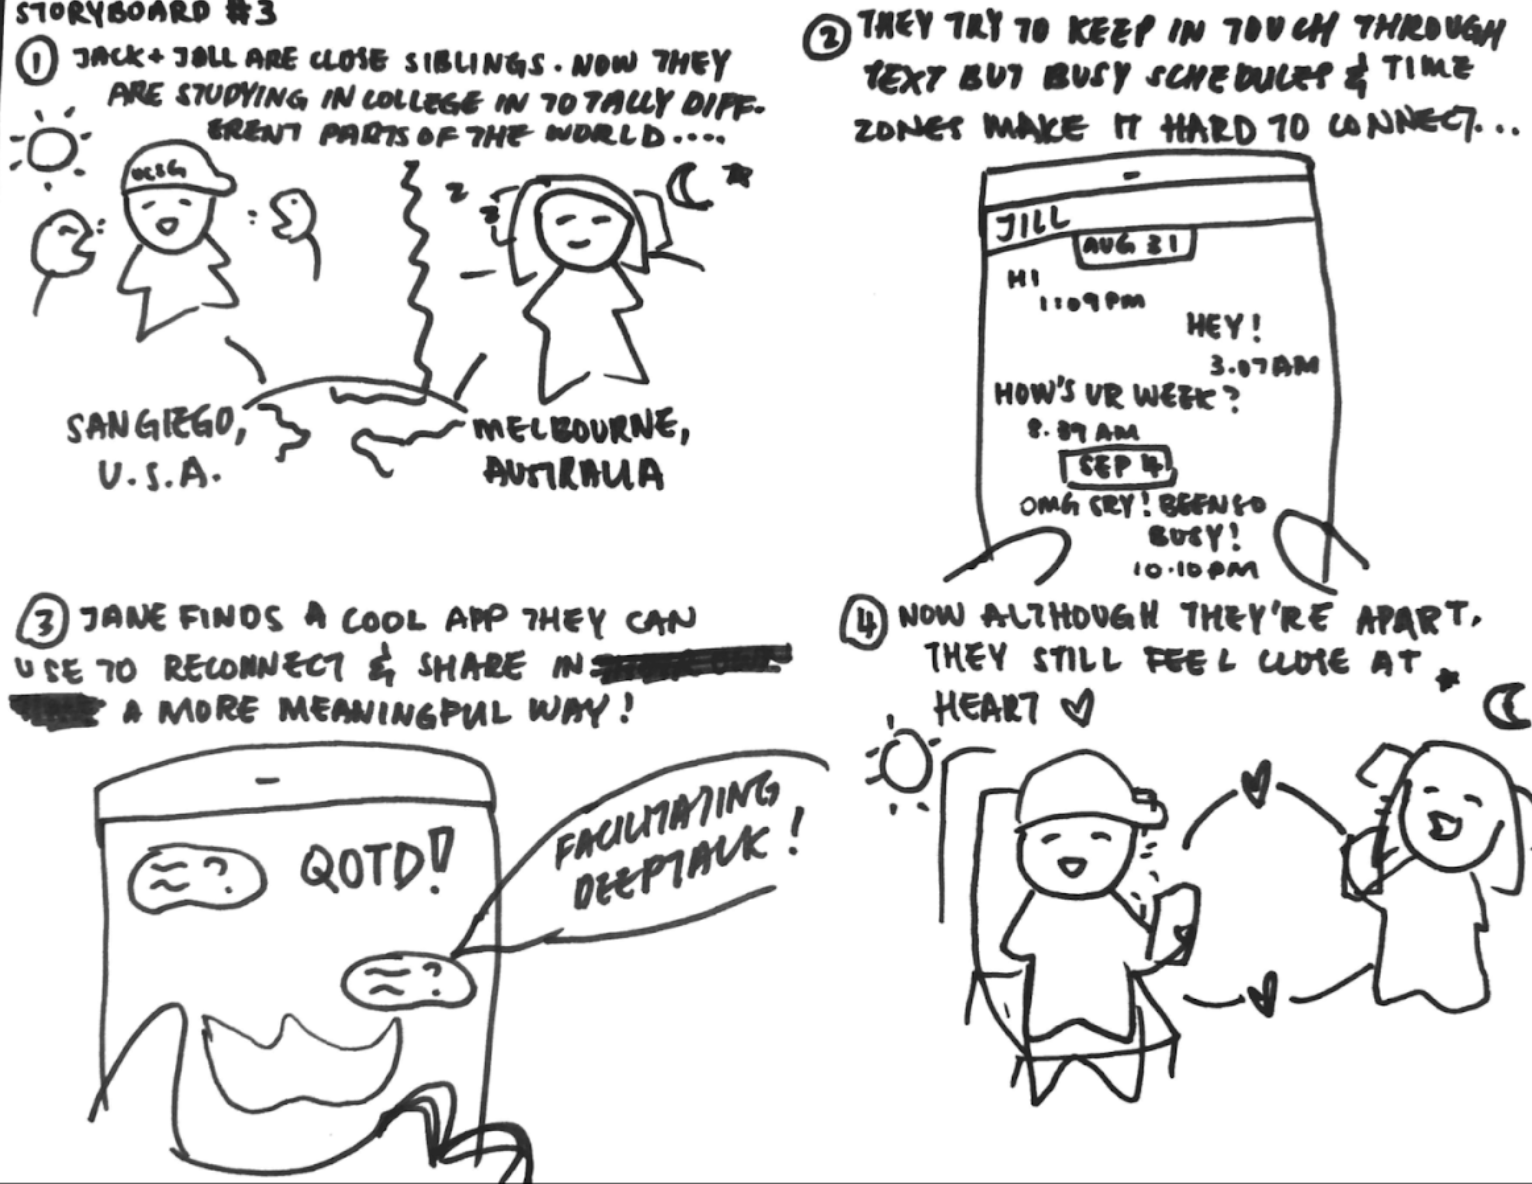 STORYBOARD #3
① JACK + JILL ARE CLOSE SIBLINGS. NOW THEY
ARE STUDYING IN COLLEGE IN TOTALLY DIFF-
ERENT PARTS OF THE WORLD....
UCSG
z
z
SAN GIEGO,
U.S.A.
MELBOURNE,
AUSTRALIA
② THEY TRY TO KEEP IN TOUCH THROUGH
TEXT BUT BUSY SCHEDULES & TIME
ZONES MAKE IT HARD TO CONNECT...
JILL
AUG 31
HI
1:09PM
HEY!
3.07AM
HOW'S UR WEEK?
8.39 AM
SEP 4
OMG SRY! BEEN SO
BUSY!
10.10PM
③ JANE FINDS A COOL APP THEY CAN
USE TO RECONNECT & SHARE IN
A MORE MEANINGFUL WAY!
? QOTD!
?
FACILITATING
DEEPTALK!
④ NOW ALTHOUGH THEY'RE APART,
THEY STILL FEEL CLOSE AT
HEART ♡